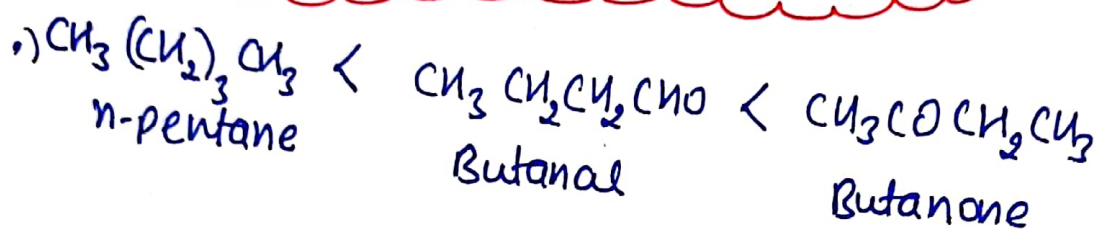 •) CH₃ (CH₂)₃ CH₃ < CH₃ CH₂CH₂CHO < CH₃COCH₂CH₃
n-pentane Butanal Butanone